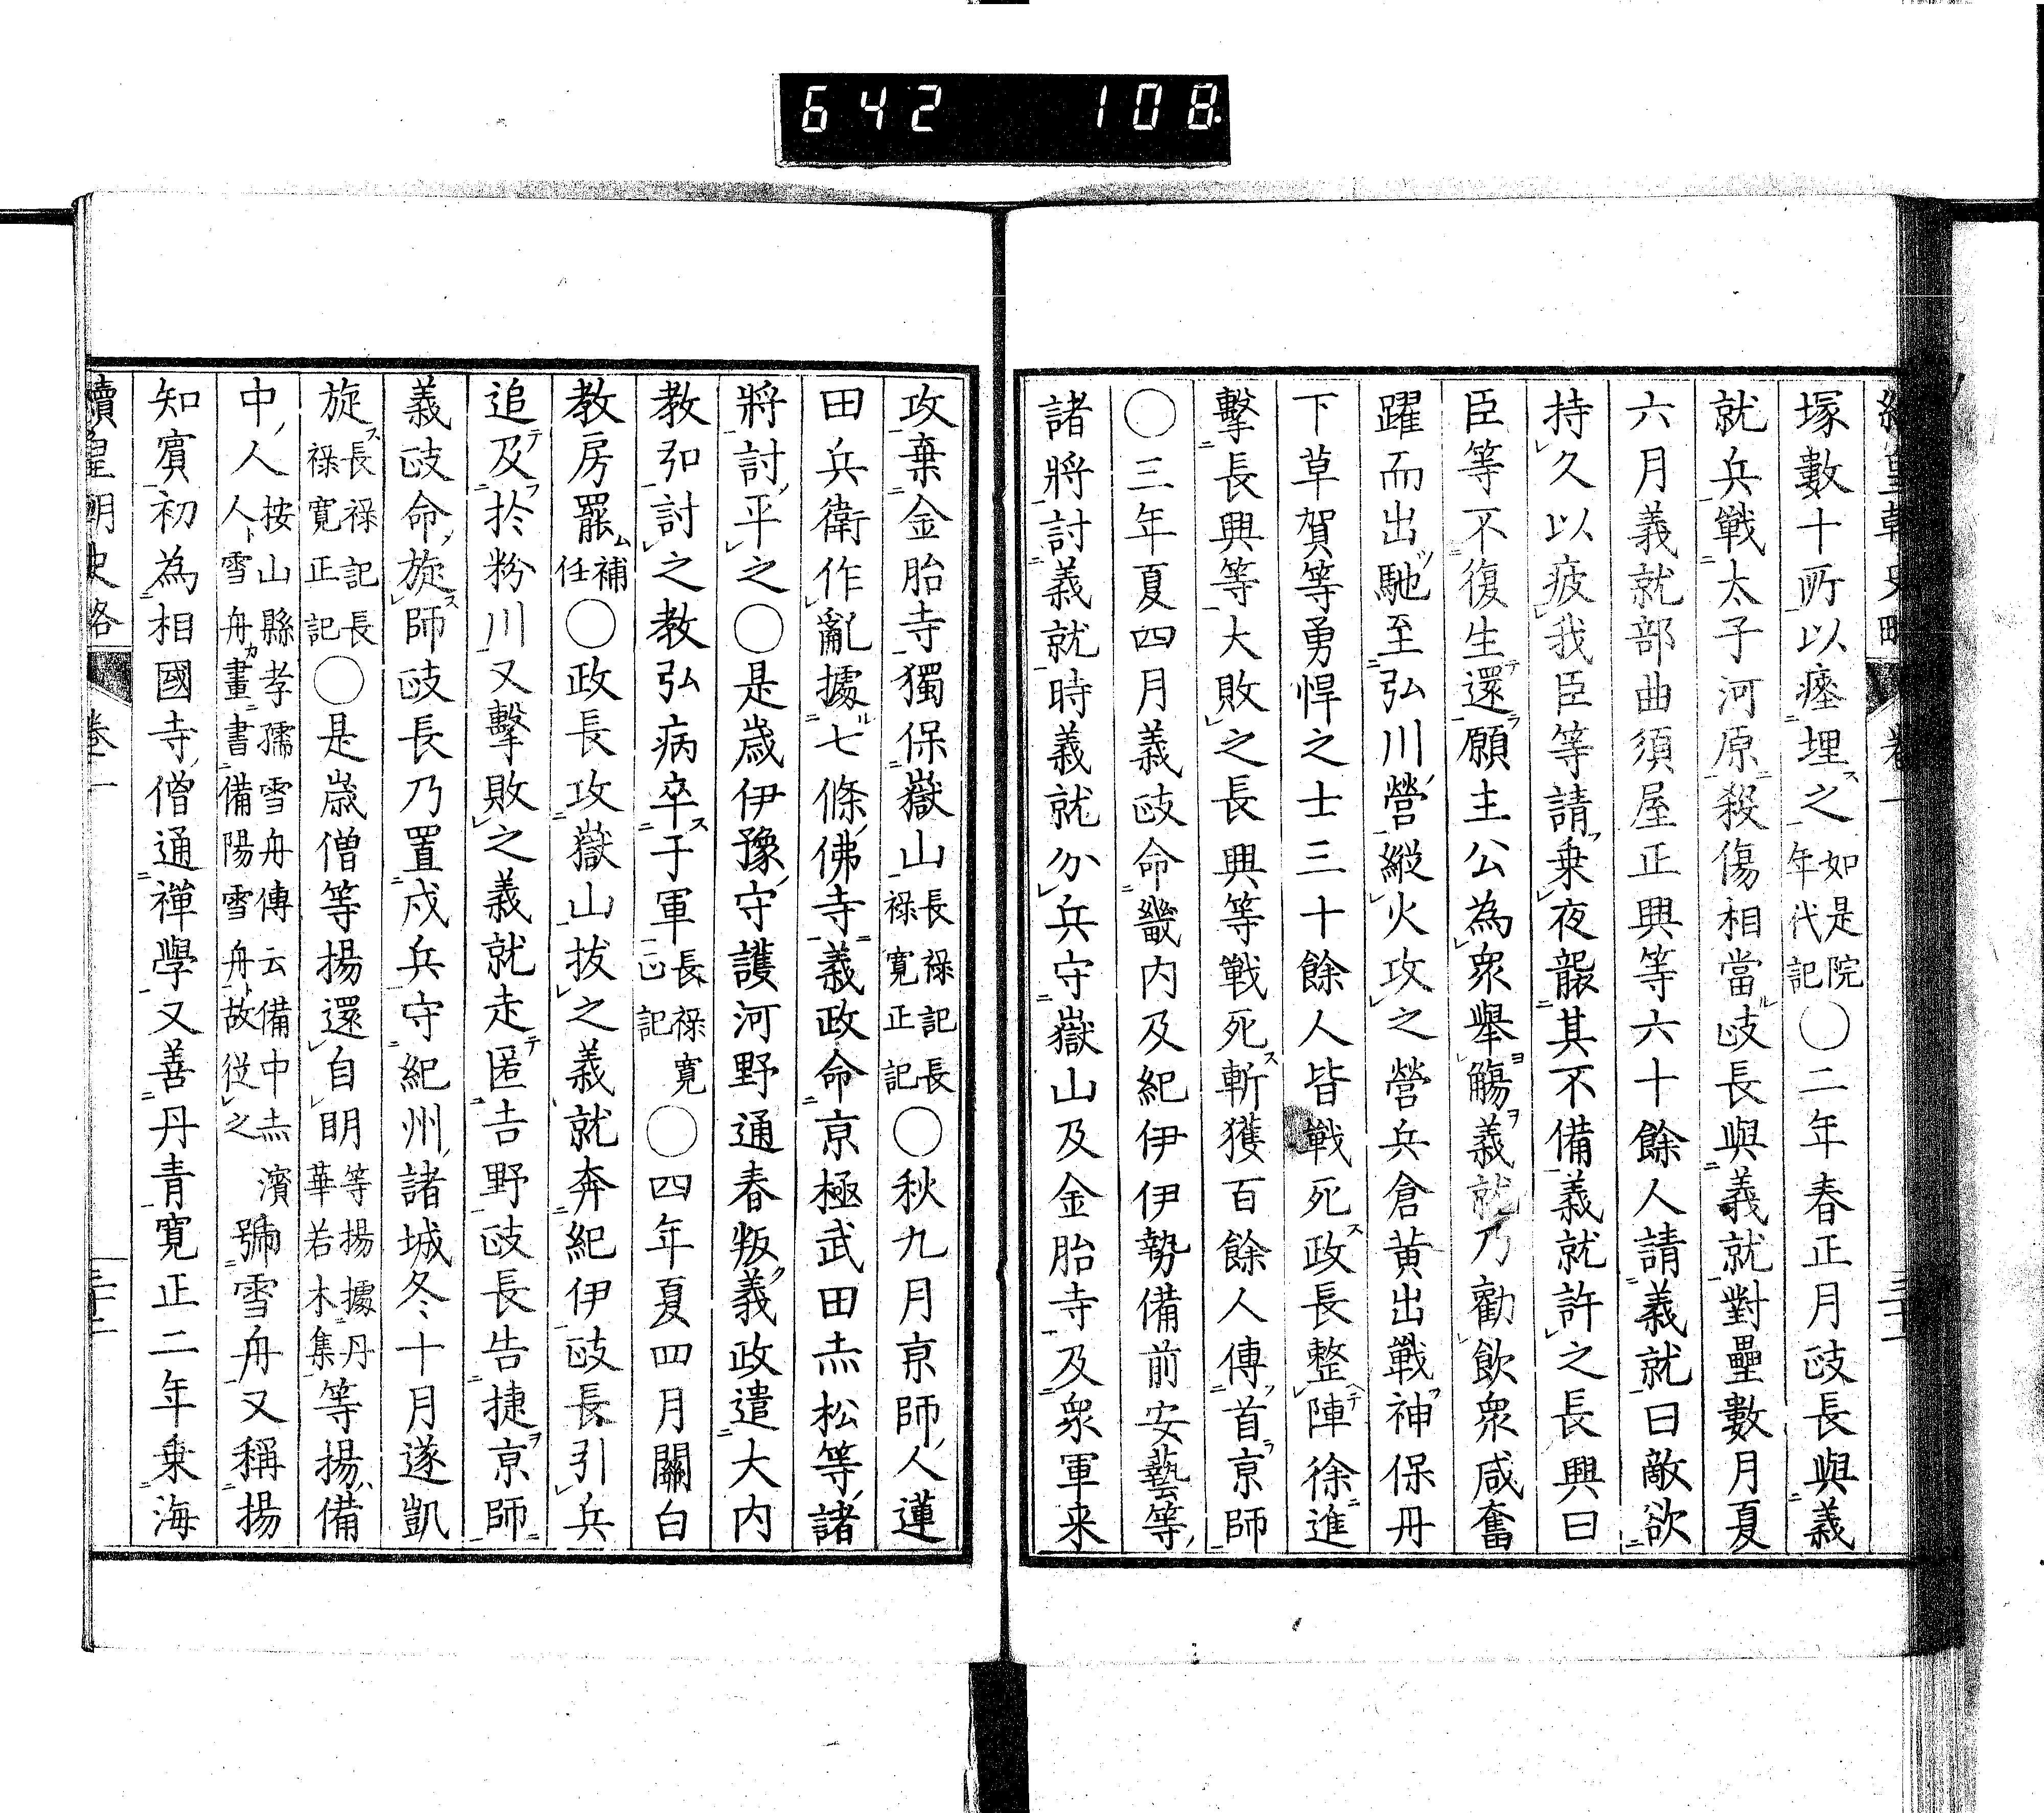 642 108
塚數十所以瘞埋之如是院年代記〇二年春正月政長與義
就兵戰太子河原殺傷相當政長與義就對壘數月夏
六月義就部曲須屋正興等六十餘人請義就曰敵欲
持久以疲我臣等請乗夜襲其不備義就許之長興曰
臣等不復生還願主公為衆舉觴義就乃勸飲衆咸奮
躍而出馳至弘川營縱火攻之營兵倉黄出戰神保丹
下草賀等勇悍之士三十餘人皆戰死政長整陣徐進
擊長興等大敗之長興等戰死斬獲百餘人傳首京師
〇三年夏四月義政命畿内及紀伊伊勢備前安藝等
諸將討義就時義就分兵守嶽山及金胎寺及衆軍来
攻棄金胎寺獨保嶽山長禄記長禄寛正記〇秋九月京師人蓮
田兵衛作亂據七條佛寺義政命京極武田赤松等諸
將討平之〇是歳伊豫守護河野通春叛義政遣大内
教弘討之教弘病卒于軍長禄寛正記〇四年夏四月關白
教房罷補任〇政長攻嶽山拔之義就奔紀伊政長引兵
追及於粉川又擊敗之義就走匿吉野政長告捷京師
義政命旋師政長乃置戍兵守紀州諸城冬十月遂凱
旋長禄記長禄寛正記〇是歳僧等揚還自明等揚據丹華若木集等揚備
中人按山縣孝孺雪舟傳云備中赤濱人雪舟畫書備陽雪舟故從之號雪舟又稱揚
知賓初為相國寺僧通禪學又善丹青寛正二年乗海
續皇朝史略 卷一